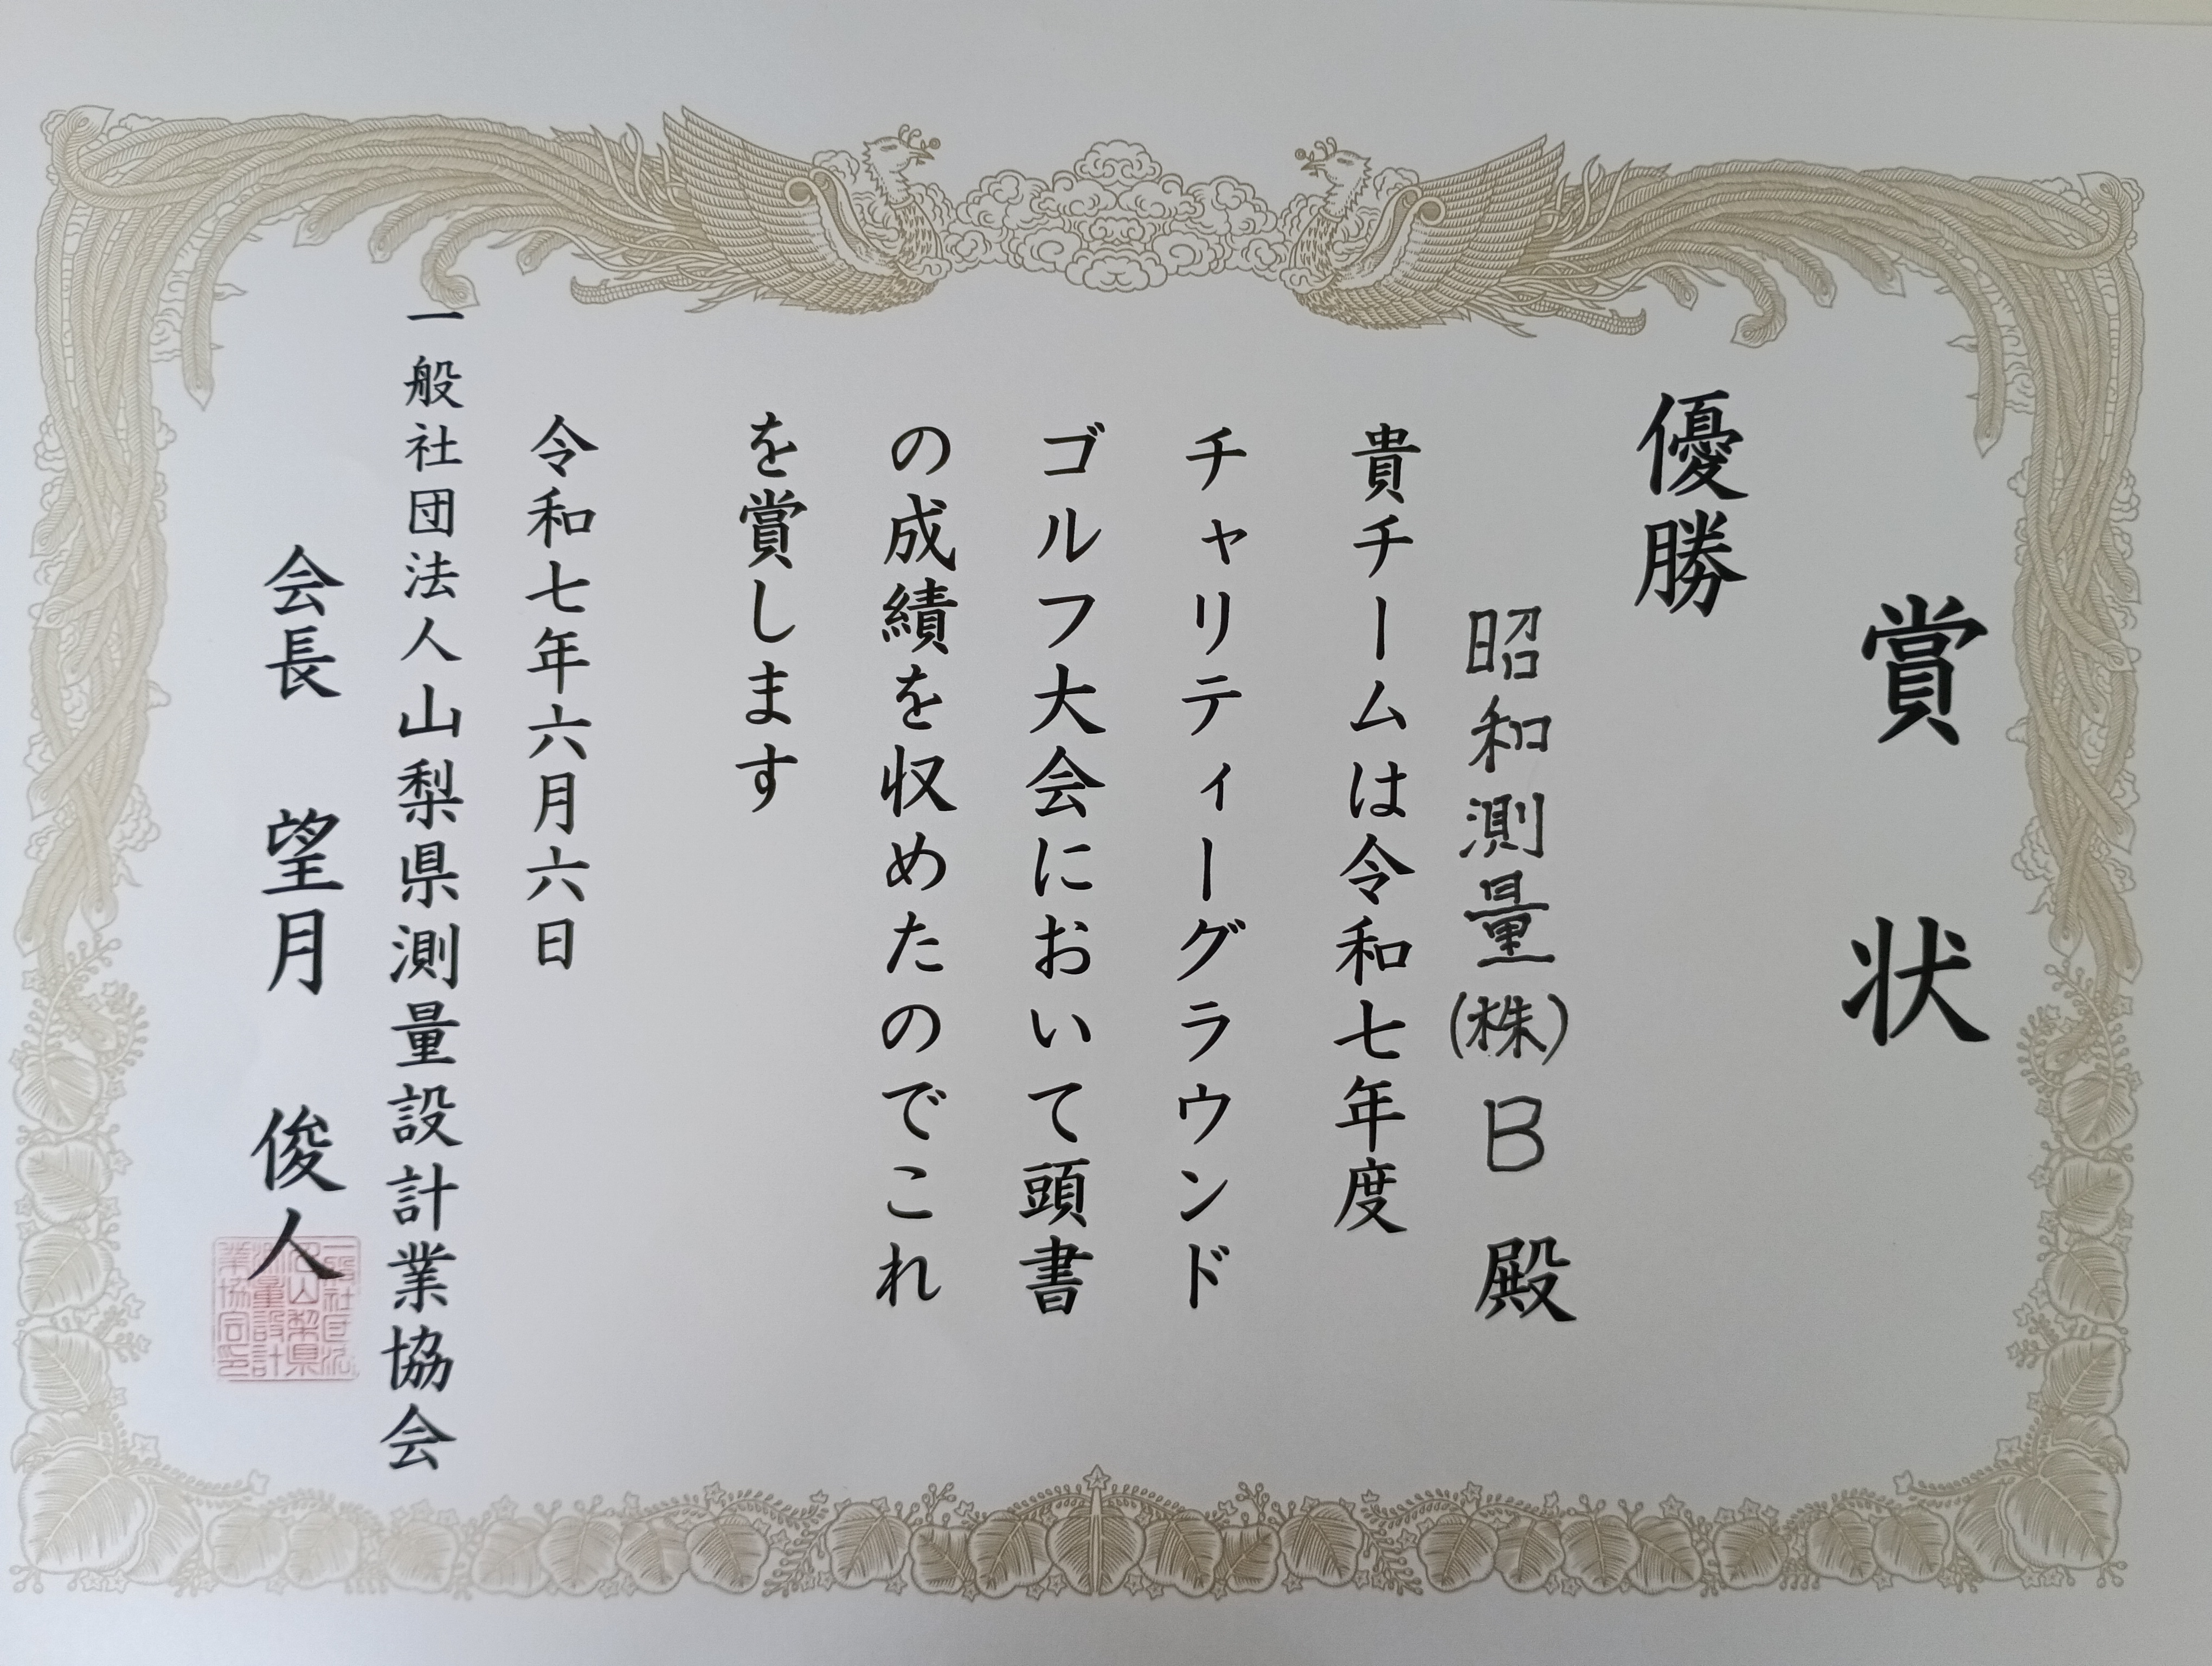 賞状
優勝
昭和測量(株)B殿
貴チームは令和七年度
チャリティーグラウンド
ゴルフ大会において頭書
の成績を収めたのでこれ
を賞します
令和七年六月六日
一般社団法人山梨県測量設計業協会
会長 望月 俊人